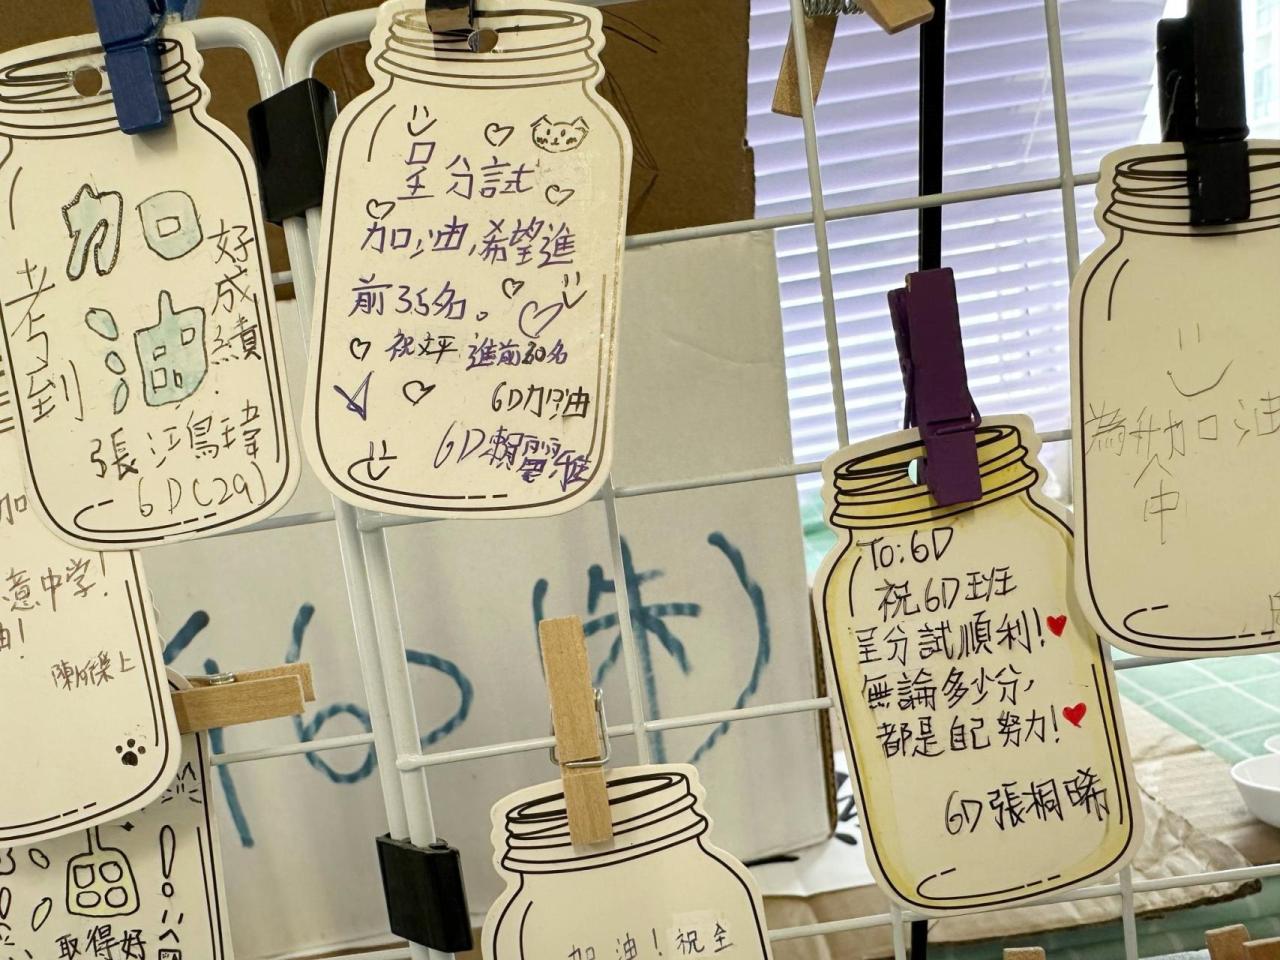 加
油
考到
好成績
張
6D(29)
呈分試
加油,希望進
前35名。
祝文平 進前30名
6D加油
6D賴
加
意中学!
油!
上
取得好
(6
朱)
加油!祝全
To:6D
祝6D班
呈分試順利!
無論多少分,
都是自己努力!
6D張桐晞
為升加油
中